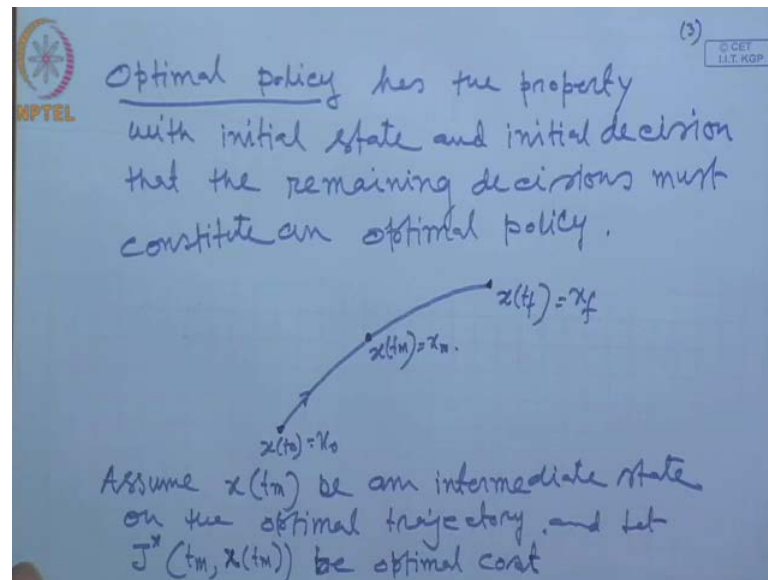 (3)
© CET
I.I.T. KGP
NPTEL
Optimal policy has the property
with initial state and initial decision
that the remaining decisions must
constitute an optimal policy.
x(tf) = xf
x(tm) = xm.
x(t0) = x0
Assume x(tm) be an intermediate state
on the optimal trajectory. and let
J*(tm, x(tm)) be optimal cost